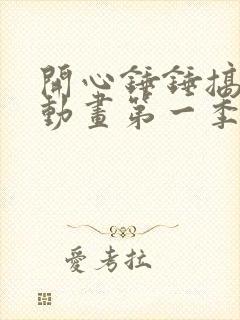 開心錘錘搞
動畫第一季
愛考拉